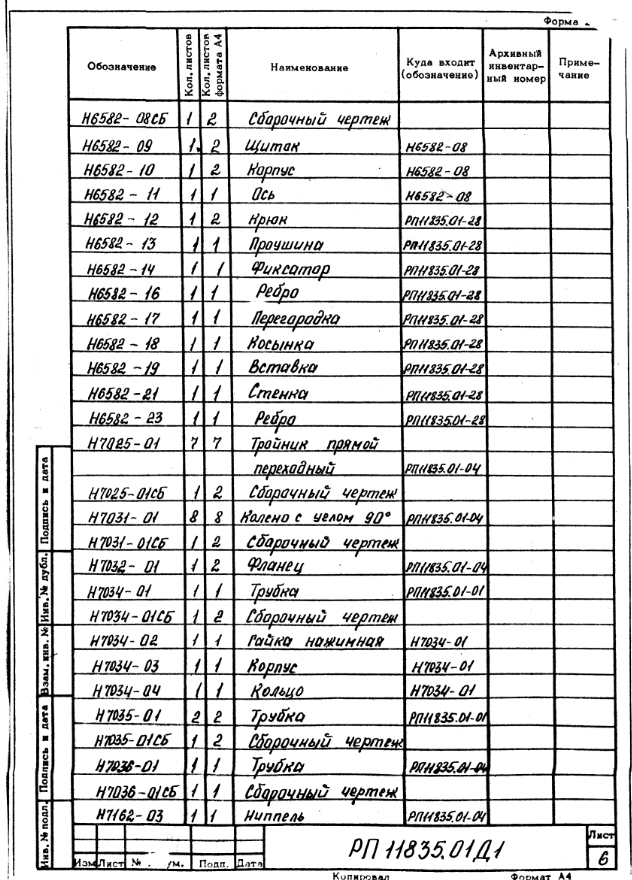 Форма
Обозначение | Кол. листов | Кол. листов формата А4 | Наименование | Куда входит (обозначение) | Архивный инвентарный номер | Примечание
Н6582-08СБ 1 2 Сборочный чертеж
Н6582-09 1 2 Щиток Н6582-08
Н6582-10 1 2 Корпус Н6582-08
Н6582-11 1 1 Ось Н6582-08
Н6582-12 1 2 Крюк РП11835.01-28
Н6582-13 1 1 Проушина РП11835.01-28
Н6582-14 1 1 Фиксатор РП11835.01-28
Н6582-16 1 1 Ребро РП11835.01-28
Н6582-17 1 1 Перегородка РП11835.01-28
Н6582-18 1 1 Косынка РП11835.01-28
Н6582-19 1 1 Вставка РП11835.01-28
Н6582-21 1 1 Стенка РП11835.01-28
Н6582-23 1 1 Ребро РП11835.01-28
Н7025-01 7 7 Тройник прямой
переходный РП11835.01-04
Н7025-01СБ 1 2 Сборочный чертеж
Н7031-01 8 8 Колено с углом 90° РП11835.01-04
Н7031-01СБ 1 2 Сборочный чертеж
Н7032-01 1 2 Фланец РП11835.01-04
Н7034-01 1 1 Трубка РП11835.01-01
Н7034-01СБ 1 2 Сборочный чертеж
Н7034-02 1 1 Гайка нажимная Н7034-01
Н7034-03 1 1 Корпус Н7034-01
Н7034-04 1 1 Кольцо Н7034-01
Н7035-01 2 2 Трубка РП11835.01-01
Н7035-01СБ 1 2 Сборочный чертеж
Н7036-01 1 1 Трубка РП11835.01-04
Н7036-01СБ 1 1 Сборочный чертеж
Н7162-03 1 1 Ниппель РП11835.01-04
Подпись и дата
Инв. № дубл.
Взам. инв. №
Подпись и дата
Инв. № подл.
Изм Лист № Подп. Дата
РП 11835.01Д1
Лист
6
Копировал Формат А4